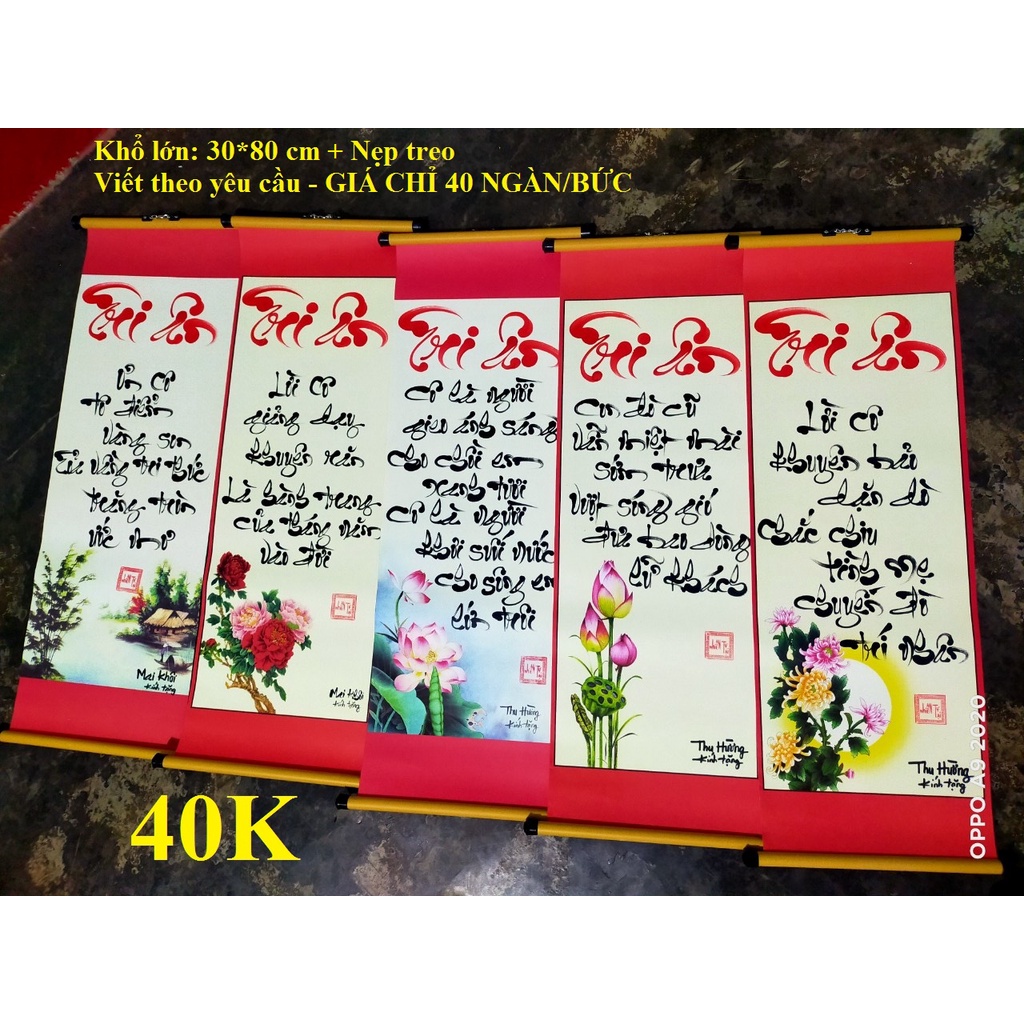 Khổ lớn: 30*80 cm + Nẹp treo
Viết theo yêu cầu - GIÁ CHỈ 40 NGÀN/BỨC
Tri Ân
Ơn cô
tô điểm
vàng son
Của vầng tri thức
trăng tròn
ước mơ
Mai Khôi
Kính tặng
Tri Ân
Lời cô
giảng dạy
khuyên răn
Là hành trang
của tháng năm
vào đời
Kính tặng
Tri Ân
Cô là người
gieo ánh sáng
cho chồi em
xanh tươi
Cô là người
khơi suối nước
cho sông em
lớn trôi
Thu Hường
Kính tặng
Tri Ân
Con đò cũ
vẫn miệt mài
sớm trưa
Vượt sóng gió
đưa bao dòng
lữ khách
Thu Hường
Kính tặng
Tri Ân
Lời cô
khuyên bảo
dặn dò
Chắc chiu
từng mẹ
chuyến đò
trí nhân
Thu Hường
Kính tặng
40K
OPPO A9 2020